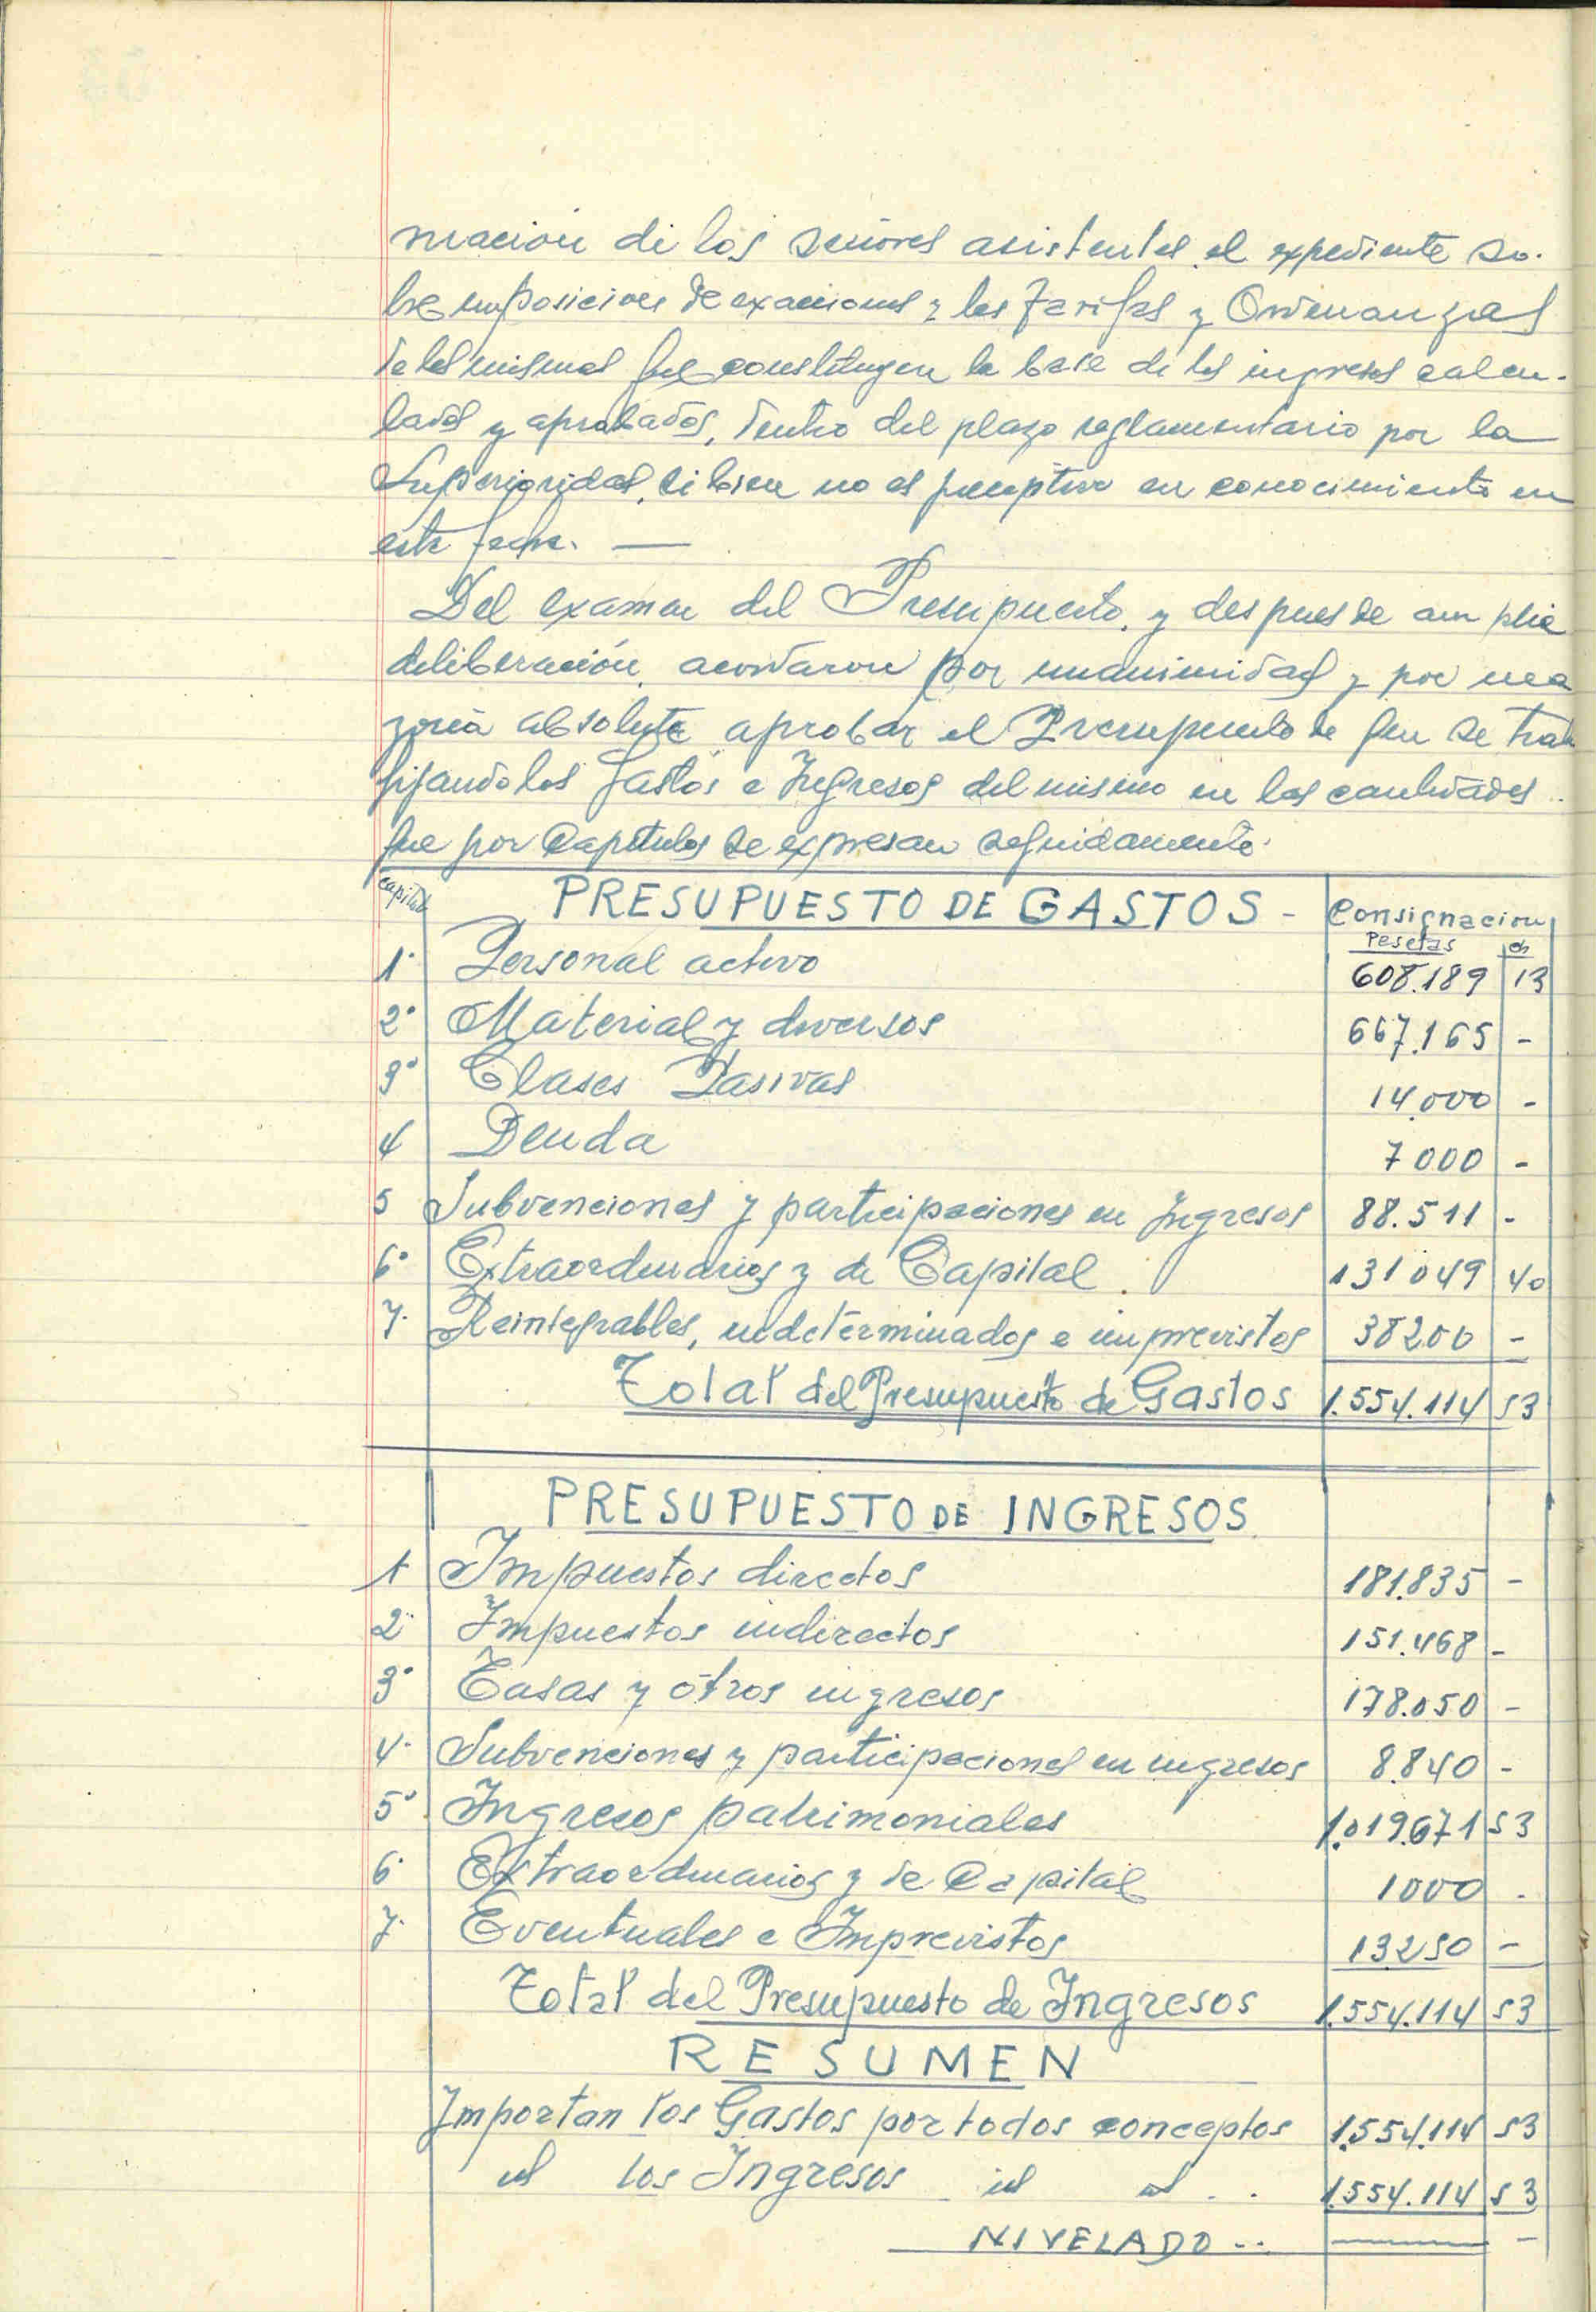 mación de los señores asistentes el expediente so-
bre imposición de exacciones y las tarifas y Ordenanzas
de las mismas que constituyen la base de los ingresos calcu-
lados y aprobados, dentro del plazo reglamentario por la
Superioridad, si bien no es preceptivo su conocimiento en
esta fecha. —
Del examen del Presupuesto, y despues de amplia
deliberación, acordaron por unanimidad y por ma
yoria absoluta aprobar el Presupuesto de que se trata
fijando los gastos e Ingresos del mismo en las cantidades
que por Capitulos se expresan seguidamente:
capitulo PRESUPUESTO DE GASTOS - Consignacion
Pesetas
1º Personal activo 608.189 13
2º Material y diversos 667.165 -
3º Clases Pasivas 14.000 -
4 Deuda 7000 -
5 Subvenciones y participaciones en Ingresos 88.511 -
6º Extraordinarios y de Capital. 131049 40
7. Reintegrables, indeterminados e imprevistos 38200 -
Total del Presupuesto de Gastos 1.554.114 53
PRESUPUESTO DE INGRESOS
1 Impuestos directos 181.835 -
2 Impuestos indirectos 151.468 -
3º Tasas y otros ingresos 178.050 -
4. Subvenciones y participaciones en ingresos 8.840 -
5º Ingresos patrimoniales 1.019.671 53
6. Extraordinarios y de Capital 1000 .
7. Eventuales e Imprevistos 13250 -
Total del Presupuesto de Ingresos 1.554.114 53
RESUMEN
Importan los Gastos por todos conceptos 1.554.114 53
id los Ingresos id id . . 1.554.114 53
NIVELADO .. —